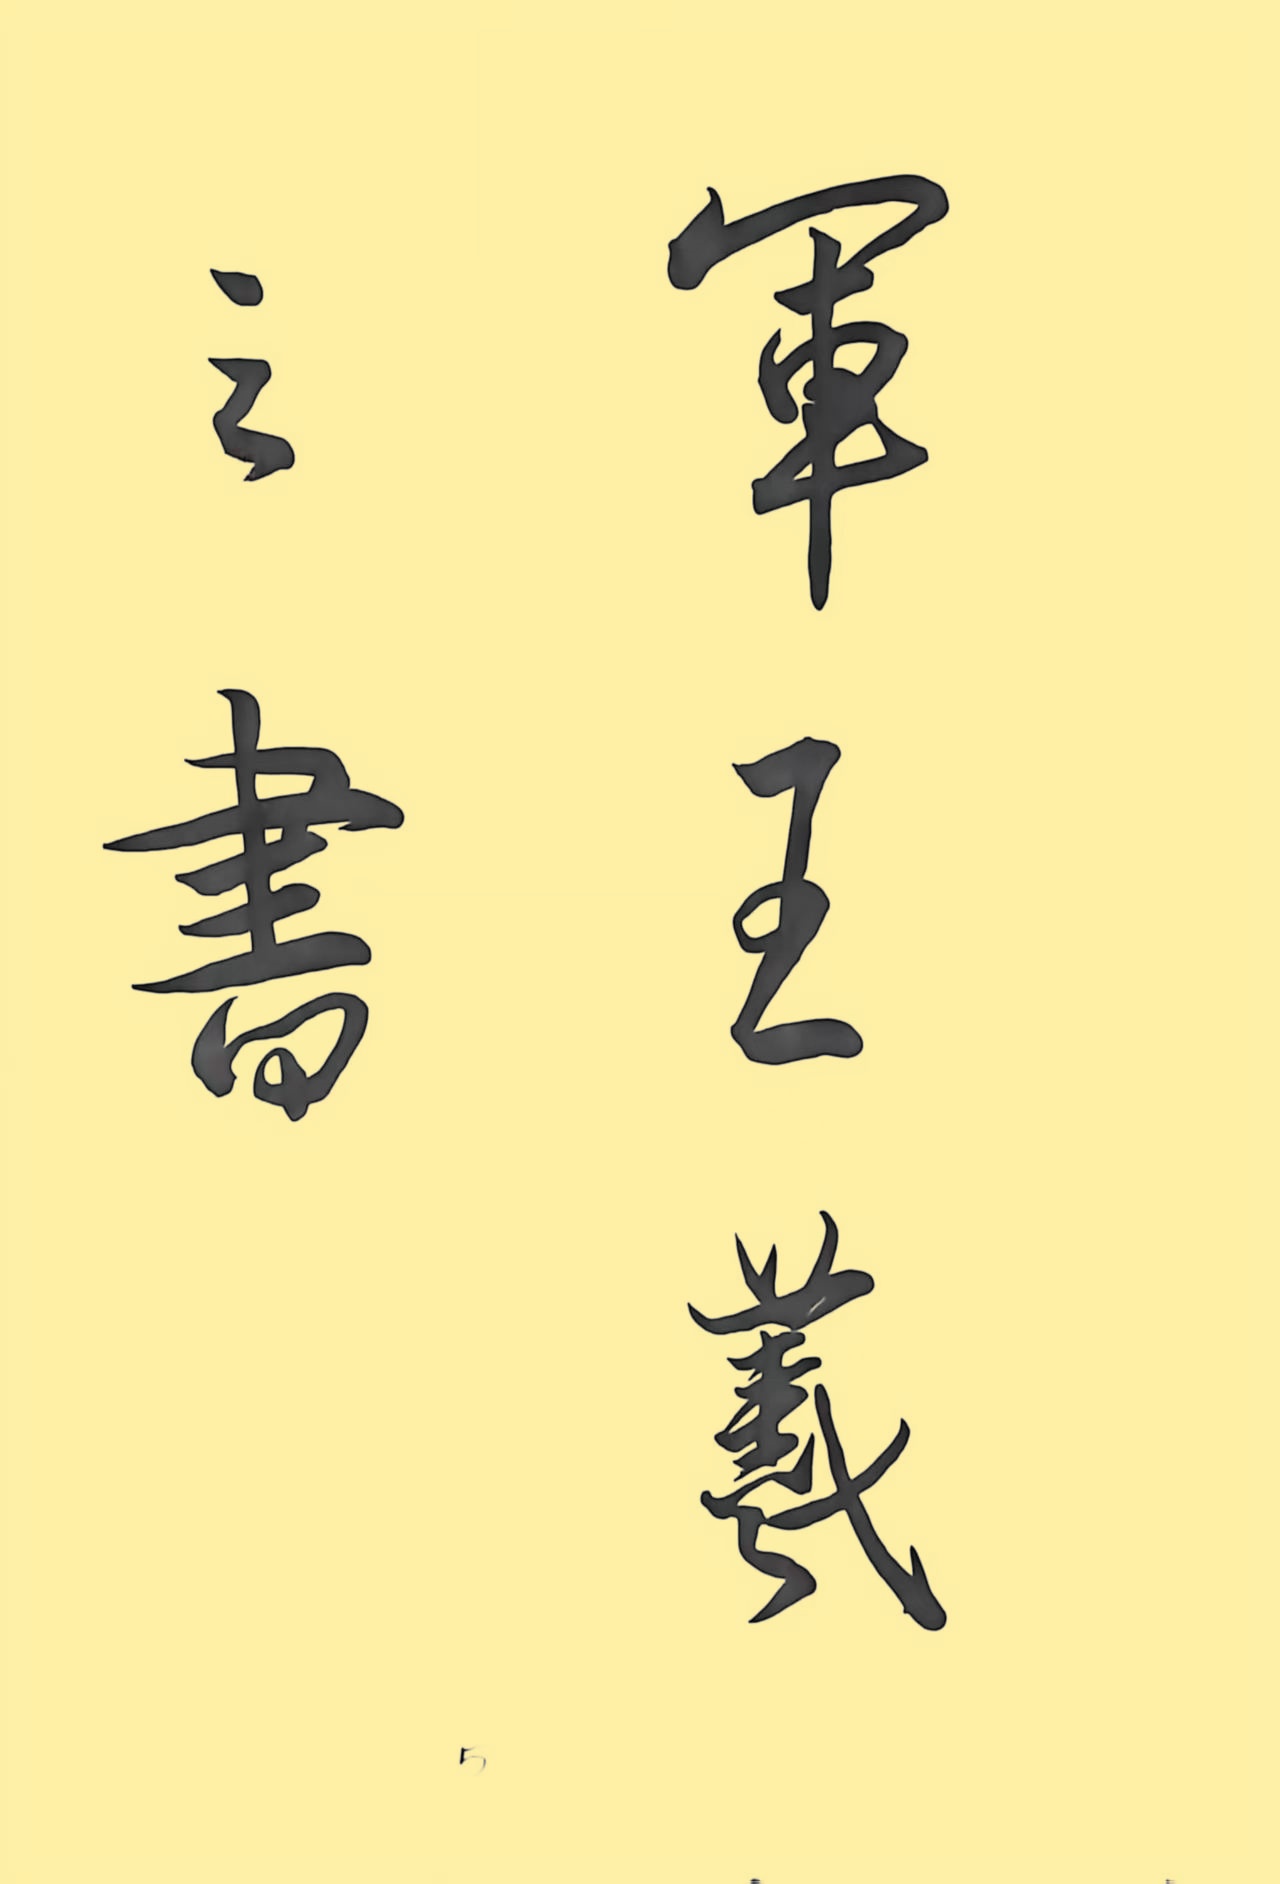 軍王羲
之書